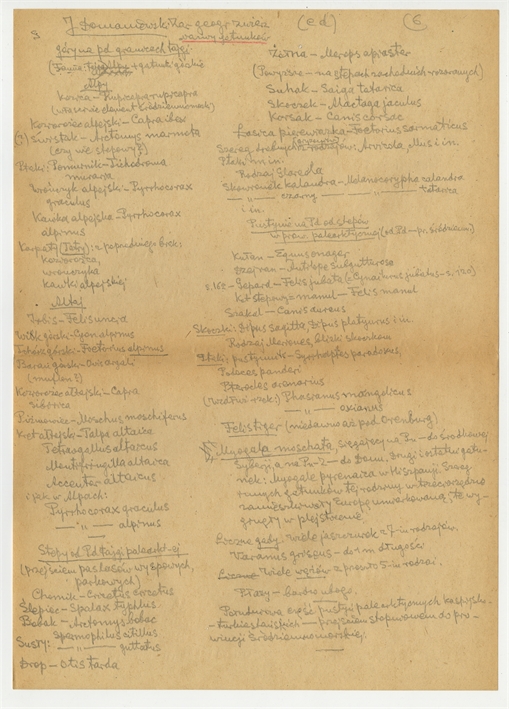 J. Domaniewski: Zar. geogr. zwierz. (cd) (6.
ważniejsze gatunki
góry na pd. granicach tajgi:
(Fauna tajgi + gatunki górskie
Alpy
Kozica – Rupicapra rupicapra
(właściwie element śródziemnom.)
Koziorożec alpejski – Capra ibex
(?) Świstak – Arctomys marmota
(czy nie stepowy?)
Ptaki: Pomurnik – Tichodroma
muraria
Wrończyk alpejski – Pyrrhocorax
graculus
Kawka alpejska – Pyrrhocorax
alpinus
Karpaty (Tatry): z poprzedniego brak:
koziorożca,
wrończyka
kawki alpejskiej
Ałtaj
Irbis – Felis uncia
Wilk górski – Cyon alpinus
Tchórz górski – Foetorius alpinus
Baran górski – Ovis argali
(muflon?)
Koziorożec ałtajski – Capra
sibirica
Piżmowiec – Moschus moschiferus
Kret ałtajski – Talpa altaica
Tetraogallus altaicus
Montifringilla altaica
Accentor altaicus
i jak w Alpach:
Pyrrhocorax graculus
— " — alpinus
Stepy od Pd tajgi palearkt-ej
(przejściem pas lasów wyspowych,
parkowych)
Chomik – Cricetus cricetus
Ślepiec – Spalax typhlus
Bobak – Arctomys bobac
Susły: Spermophilus citillus
— " — guttatus
Drop – Otis tarda
Żołna – Merops apiaster
(Powyższe – na stepach zachodnich rozoranych)
Suhak – Saiga tatarica
Skoczek – Alactaga jaculus
Korsak – Canis corsac
Łasica piegowata – Foetorius sarmaticus
Szereg drobnych form rodzajów: Arvicola, Mus i in.
Ptaki m. in:
Rodzaj Glareola
Skowronek kalandra – Melanocorypha calandra
— " — czarny — " — tatarica
i in.
Pustynie na Pd od stepów
w prow. palearktycznej (od Pd – pr. śródziemn)
Kułan – Equus onager
Dżejran – Antilope subgutturosa
s. 165 – Gepard – Felis jubata (= Cynailurus jubatus – s. 120)
Kot stepowy = manul – Felis manul
Szakal – Canis aureus
Skoczki: Dipus sagitta, Dipus platyurus i in.
Rodzaj Meriones, bliski skoczkom
Ptaki: pustynnik – Syrrhaptes paradoxus,
Podoces panderi
Pterocles arenarius
(wzdłuż rzek:) Phasianus mongolicus
— " — oxianus
Felis tigris (niedawno aż pod Orenburg)
§) Myogale moschata, sięgająca na Pn – do środkowej
Syberji, a na Pn-Z – do Donu. Drugi ostatni gatu-
nek: Myogale pyrenaica w Hiszpanji. Szereg
innych gatunków tej rodziny w trzeciorzędzie
zamieszkiwały Europę umiarkowaną, te wy-
ginęły w plejstocenie.
Liczne gady. Wiele jaszczurek z 7-iu rodzajów.
Varanus griseus – do 1 m długości
Wiele wężów z prostu 5-iu rodzai.
Płazy – bardzo ubogo.
Południowa część pustyń palearktycznych kaspijsko-
– turkiestańskich — przejściem stopniowem do pro-
wincji śródziemnomorskiej.